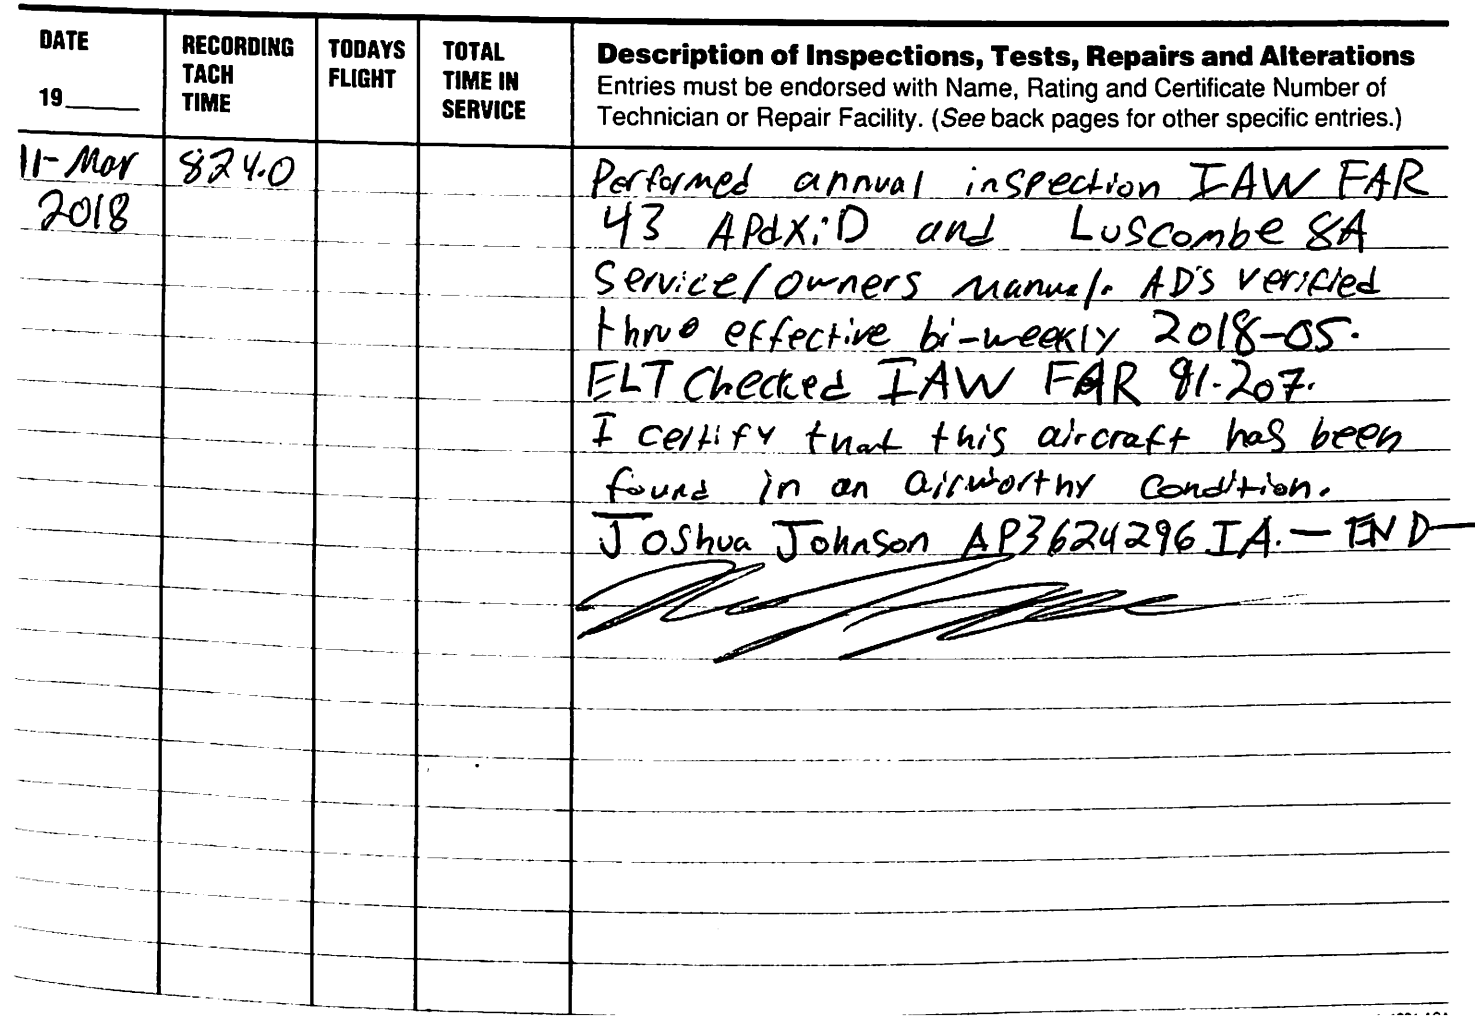 DATE
19____
RECORDING
TACH
TIME
TODAYS
FLIGHT
TOTAL
TIME IN
SERVICE
Description of Inspections, Tests, Repairs and Alterations
Entries must be endorsed with Name, Rating and Certificate Number of
Technician or Repair Facility. (See back pages for other specific entries.)
11-Mar
2018
824.0
Performed annual inspection IAW FAR
43 APdX:D and Luscombe 8A
Service/owners manual. AD's verified
thruo effective bi-weekly 2018-05.
ELT Checked IAW FAR 91.207.
I certify that this aircraft has been
found in an airworthy condition.
Joshua Johnson AP3624296IA. — END—